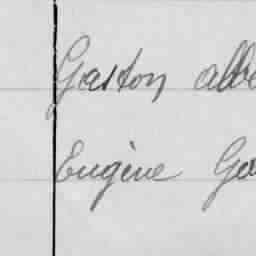 Gaston abbe
Eugène Ge